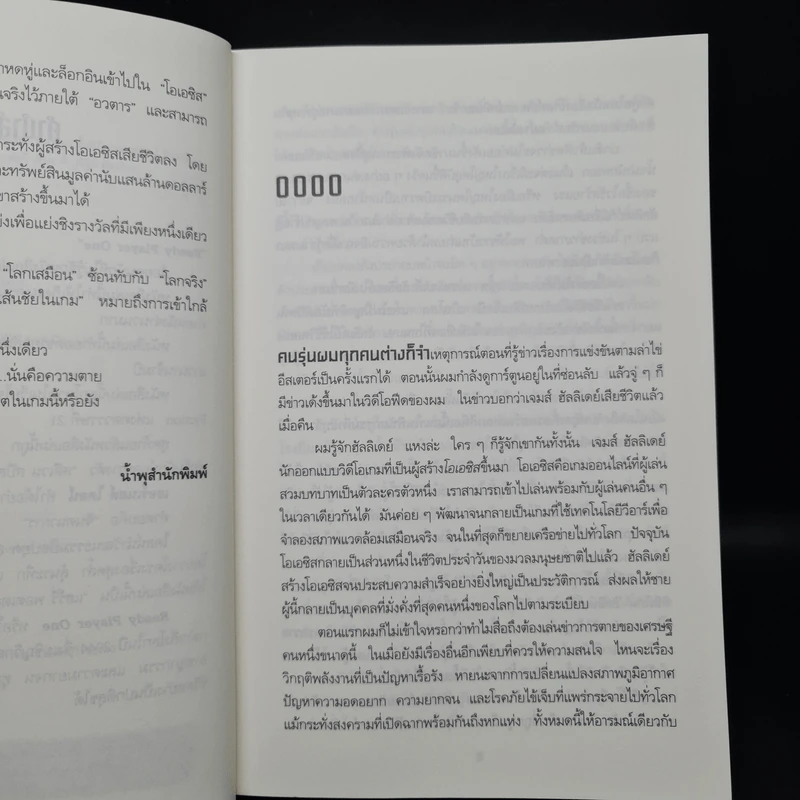 าหดหู่และล็อกอินเข้าไปใน "โอเอซิส"
นจริงไว้ภายใต้ "อวตาร" และสามารถ
ระทั่งผู้สร้างโอเอซิสเสียชีวิตลง โดย
ะทรัพย์สินมูลค่านับแสนล้านดอลลาร์
าสร้างขึ้นมาได้
ข่งเพื่อแย่งชิงรางวัลที่มีเพียงหนึ่งเดียว
"โลกเสมือน" ซ้อนทับกับ "โลกจริง"
เส้นชัยในเกม" หมายถึงการเข้าใกล้
นึ่งเดียว
...นั่นคือความตาย
ตในเกมนี้หรือยัง
น้ำพุสำนักพิมพ์
0000
คนรุ่นผมทุกคนต่างก็จำเหตุการณ์ตอนที่รู้ข่าวเรื่องการแข่งขันตามล่าไข่
อีสเตอร์เป็นครั้งแรกได้ ตอนนั้นผมกำลังดูการ์ตูนอยู่ในที่ซ่อนลับ แล้วจู่ ๆ ก็
มีข่าวเด้งขึ้นมาในวิดีโอฟีดของผม ในข่าวบอกว่าเจมส์ ฮัลลิเดย์เสียชีวิตแล้ว
เมื่อคืน
ผมรู้จักฮัลลิเดย์ แหงล่ะ ใคร ๆ ก็รู้จักเขากันทั้งนั้น เจมส์ ฮัลลิเดย์
นักออกแบบวิดีโอเกมที่เป็นผู้สร้างโอเอซิสขึ้นมา โอเอซิสคือเกมออนไลน์ที่ผู้เล่น
สวมบทบาทเป็นตัวละครตัวหนึ่ง เราสามารถเข้าไปเล่นพร้อมกับผู้เล่นคนอื่น ๆ
ในเวลาเดียวกันได้ มันค่อย ๆ พัฒนาจนกลายเป็นเกมที่ใช้เทคโนโลยีวีอาร์เพื่อ
จำลองสภาพแวดล้อมเสมือนจริง จนในที่สุดก็ขยายเครือข่ายไปทั่วโลก ปัจจุบัน
โอเอซิสกลายเป็นส่วนหนึ่งในชีวิตประจำวันของมวลมนุษยชาติไปแล้ว ฮัลลิเดย์
สร้างโอเอซิสจนประสบความสำเร็จอย่างยิ่งใหญ่เป็นประวัติการณ์ ส่งผลให้ชาย
ผู้นี้กลายเป็นบุคคลที่มั่งคั่งที่สุดคนหนึ่งของโลกไปตามระเบียบ
ตอนแรกผมก็ไม่เข้าใจหรอกว่าทำไมสื่อถึงต้องเล่นข่าวการตายของเศรษฐี
คนหนึ่งขนาดนี้ ในเมื่อยังมีเรื่องอื่นอีกเพียบที่ควรให้ความสนใจ ไหนจะเรื่อง
วิกฤติพลังงานที่เป็นปัญหาเรื้อรัง หายนะจากการเปลี่ยนแปลงสภาพภูมิอากาศ
ปัญหาความอดอยาก ความยากจน และโรคภัยไข้เจ็บที่แพร่กระจายไปทั่วโลก
แม้กระทั่งสงครามที่เปิดฉากพร้อมกันถึงหกแห่ง ทั้งหมดนี้ให้อารมณ์เดียวกับ